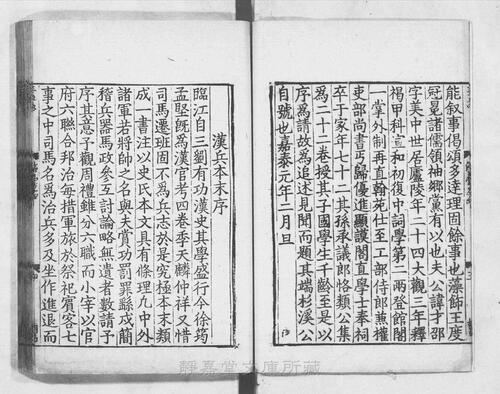 能叙事偈頌多達理固餘事也藻飾王度
冠冕諸儒領袖鄉黨有以也夫公諱才邵
字美中世居廬陵年二十四大觀三年釋
褐甲科宣和初復中詞學第二兩登館閣
一掌外制再直翰苑仕至工部侍郎兼權
吏部尚書丐歸優進顯謨閣直學士奉祠
卒于家年七十二其孫承議郎恪類公集
為二十二卷授其子國學生千齡至是以
序為請故為追述見聞而題其端杉溪公
自號也嘉泰元年二月旦
漢兵本末序
臨江自三劉有功漢史其學盛行今徐筠
孟堅既為漢官考四卷季天麟仲祥又惜
司馬遷班固不為兵志於是究極本末類
成一書注以史氏本文具有條理凡中外
諸軍若將帥之名與夫賞功罰罪繇戍簡
稽兵器馬政參互討論略無遺者數請予
序其意予觀周禮雖分六職而小宰以官
府六聯合邦治每揩軍旅於祭祀賓客七
事之中司馬名為治兵多及坐作進退而
靜嘉堂文庫所藏